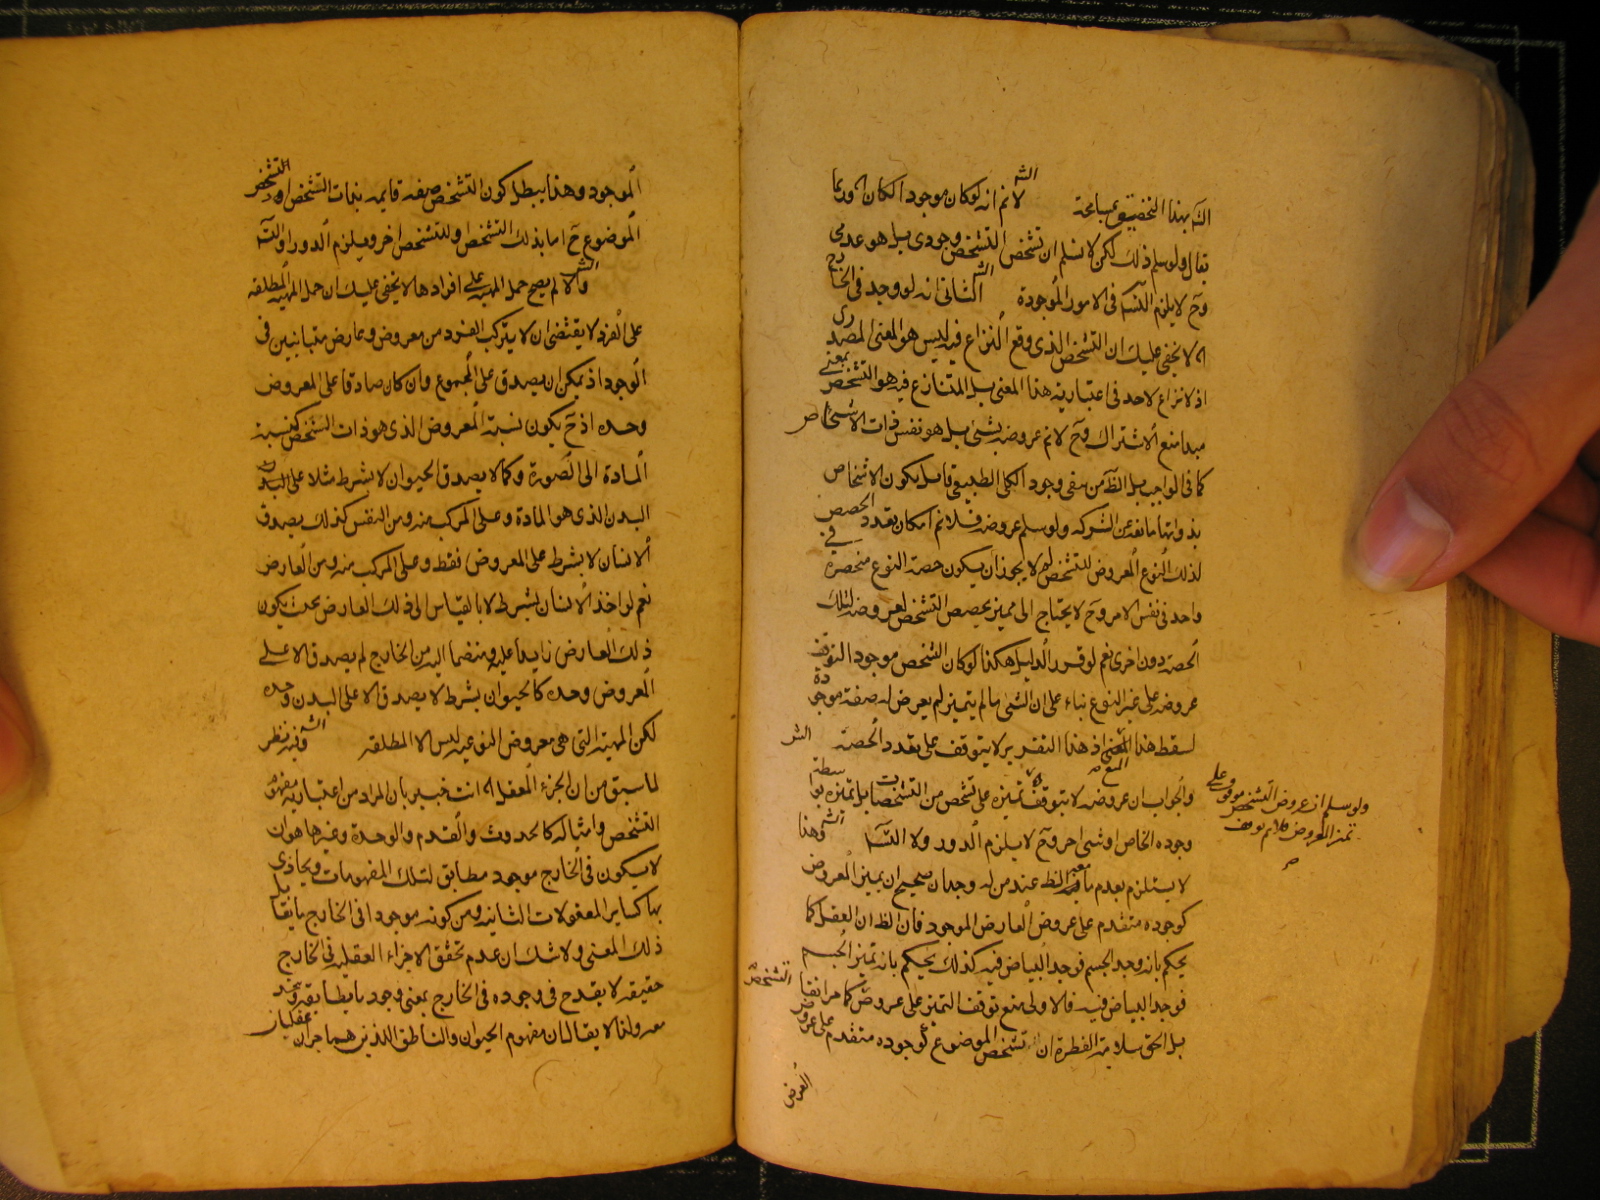 الله بهذا التحقيق عبا محة لا نم انه لو كان موجودا لكان اه وربما
يقال ولو سلم ذلك لكن لا نسلم ان تشخص التشخص وجودى بل هو عدمى
وح لا يلزم التسه فى الامور الموجودة الثانى انه لو وجد فى الخارج
اه لا يخفى عليك ان التشخص الذى وقع النزاع فيه ليس هو المعنى المصدرى
اذ لا نزاع لاحد فى اعتبارية هذا المعنى بل المتنازع فيه هو التشخص بمعنى
مبدا منع الاشتراك وح لا نم عروضه بشئ بل هو نفس ذات الاشخاص
كما فى الواجب بل الظ من ينفى وجود الكلى الطبيعى قايل بكون الاشخاص
بذواتها مانعة عن الشركة ولو سلم عروضه فلا نم امكان تعدد الحصص
لذلك النوع المعروض للتشخص لم لا يجوز ان يكون حصة النوع منحصرة فى
واحد فى نفس الامر وح لا يحتاج الى مميز يخصص التشخص لعروضه لتلك
الحصة دون اخرى نعم لو قرر الدليل هكذا لو كان التشخص موجودا لتوقف
عروضه على تميز النوع بناء على ان الشئ ما لم يتميز لم يعرض له صفة موجودة
لسقط هذا المنع اذ هذا التقرير لا يتوقف على تعدد الحصة الشر
والجواب ان عروضه لا يتوقف تميزه على تشخص من التشخصات بل تميزه بواسطة
وجوده الخاص او شئ اخر وح لا يلزم الدور ولا التسه وهذا
لا يستلزم تعدم ما الظ عند من له وجدان صحيح ان تميز المعروض
كوجوده متقدم على عروض العارض الموجود فان الظ ان العقل كما
يحكم بانه وجد الجسم فوجد البياض فيه كذلك يحكم بانه تميز الجسم
فوجد البياض فيه فالاولى منع توقف التميز على عروض التشخص كما مر انفا
بل الحق سلامة الفطرة ان تشخص الموضوع كوجوده متقدم على عروض
العرض
ولو سلم ان عروض التشخص موقوف على
تميز المعروض فلا نم توقف
الموجود وهذا يبطل كون التشخص صفة قايمة بذات التشخص اذ التشخص
الموضوع ح اما بذلك التشخص او للتشخص اخر ويلزم الدور او التسه
والا لم يصح حمل المهية على افرادها لا يخفى عليك ان حمل المهية المطلقة
على الفرد لا يقتضى ان لا يتركب الفرد من معروض وعارض متباينين فى
الوجود اذ يمكن ان يصدق على المجموع وان كان صادقا على المعروض
وحده اذ ح يكون نسبة المعروض الذى هو ذات الشخص كنسبة
المادة الى الصورة وكما لا يصدق الحيوان لا بشرط مثلا على البدن
البدن الذى هو المادة وعلى المركب منه ومن النفس كذلك يصدق
الانسان لا بشرط على المعروض فقط وعلى المركب منه ومن العارض
نعم لو اخذ الانسان بشرط لا بالقياس الى ذلك العارض بحيث يكون
ذلك العارض زايدا عليه ومنضما اليه من الخارج لم يصدق الا على
المعروض وحده كالحيوان بشرط لا يصدق الا على البدن وحده
لكن المهية التى هى معروض النوعية ليس الا المطلقة وفيه نظر
لما سبق من ان الجزء العقلى اه انت خبير بان المراد من اعتبارية مفهوم
التشخص وامثاله كالحدوث والقدم والوحدة وغيرها هو ان
لا يكون فى الخارج موجود مطابق لتلك المفهومات ويحاذى
بها كساير المعقولات الثانية ومن كونه موجودا فى الخارج ما يقابل
ذلك المعنى ولا شك ان عدم تحقق الاجزاء العقلية فى الخارج
حقيقة لا يقدح فى وجوده فى الخارج بمعنى وجود ما يطابقه ويتحد
معه ولذا لا يقال ان مفهوم الحيوان والناطق اللذين هما جزان عقليان